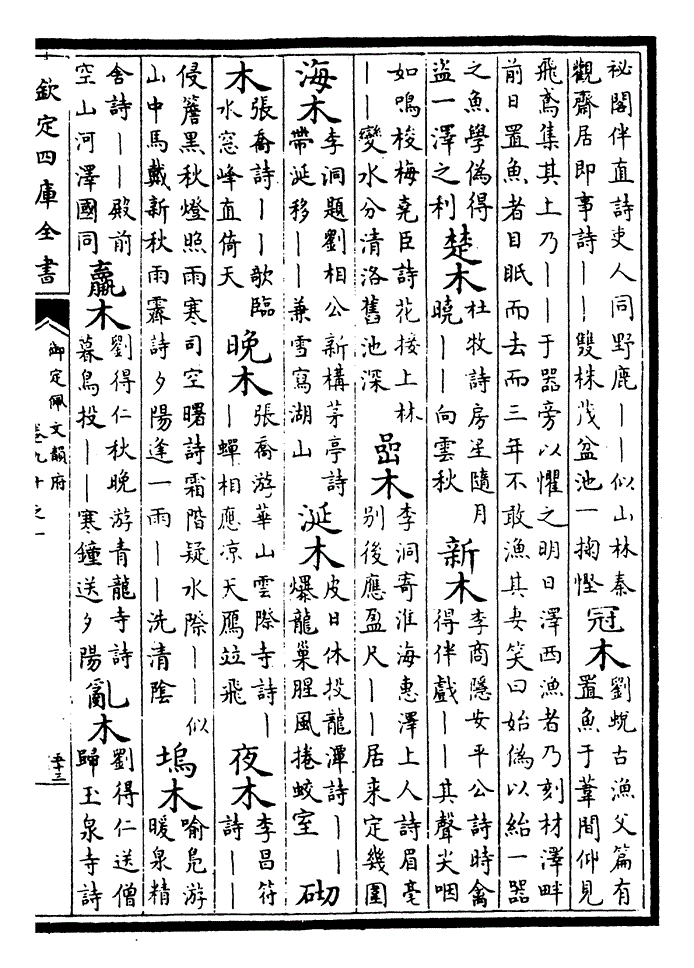 祕閣伴直詩吏人同野鹿||似山林秦
觀齋居即事詩||雙株茂盆池一掬慳
冠木
劉蛻古漁父篇有
置魚于葦間仰見
飛鳶集其上乃||于器旁以懼之明日澤西漁者乃刻材澤畔
前日置魚者目眠而去而三年不敢漁其妻笑曰始偽以紿一器
之魚學偽得
盜一澤之利
楚木
杜牧詩房星隨月
曉||向雲秋
新木
李商隱安平公詩時禽
得伴戲||其聲尖咽
如鳴梭梅堯臣詩花接上林
||變水分清洛舊池深
嵒木
李洞寄淮海惠澤上人詩眉毫
別後應盈尺||居来定幾圍
海木
李洞題劉相公新構茅亭詩
帶涎移||兼雪寫湖山
涎木
皮日休投龍潭詩||
爆龍巢腥風捲蛟室
砌
木
張喬詩||欹臨
水窓峰直倚天
晚木
張喬游華山雲際寺詩|
|蟬相應凉天鴈竝飛
夜木
李昌符
詩||
侵簷黒秋燈照雨寒司空曙詩霜階疑水際||似
山中馬戴新秋雨霽詩夕陽逢一雨||洗清陰
塢木
喻鳧游
暖泉精
舍詩||殿前
空山河澤國同
羸木
劉得仁秋晚游青龍寺詩
暮鳥投||寒鐘送夕陽
亂木
劉得仁送僧
歸玉泉寺詩
欽定四庫全書
御定佩文韻府
卷九十之一